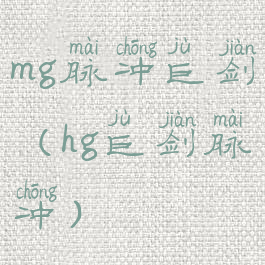 mài chōng jù jiàn
mg脉冲巨剑
jù jiàn mài
(hg巨剑脉
chōng
冲)